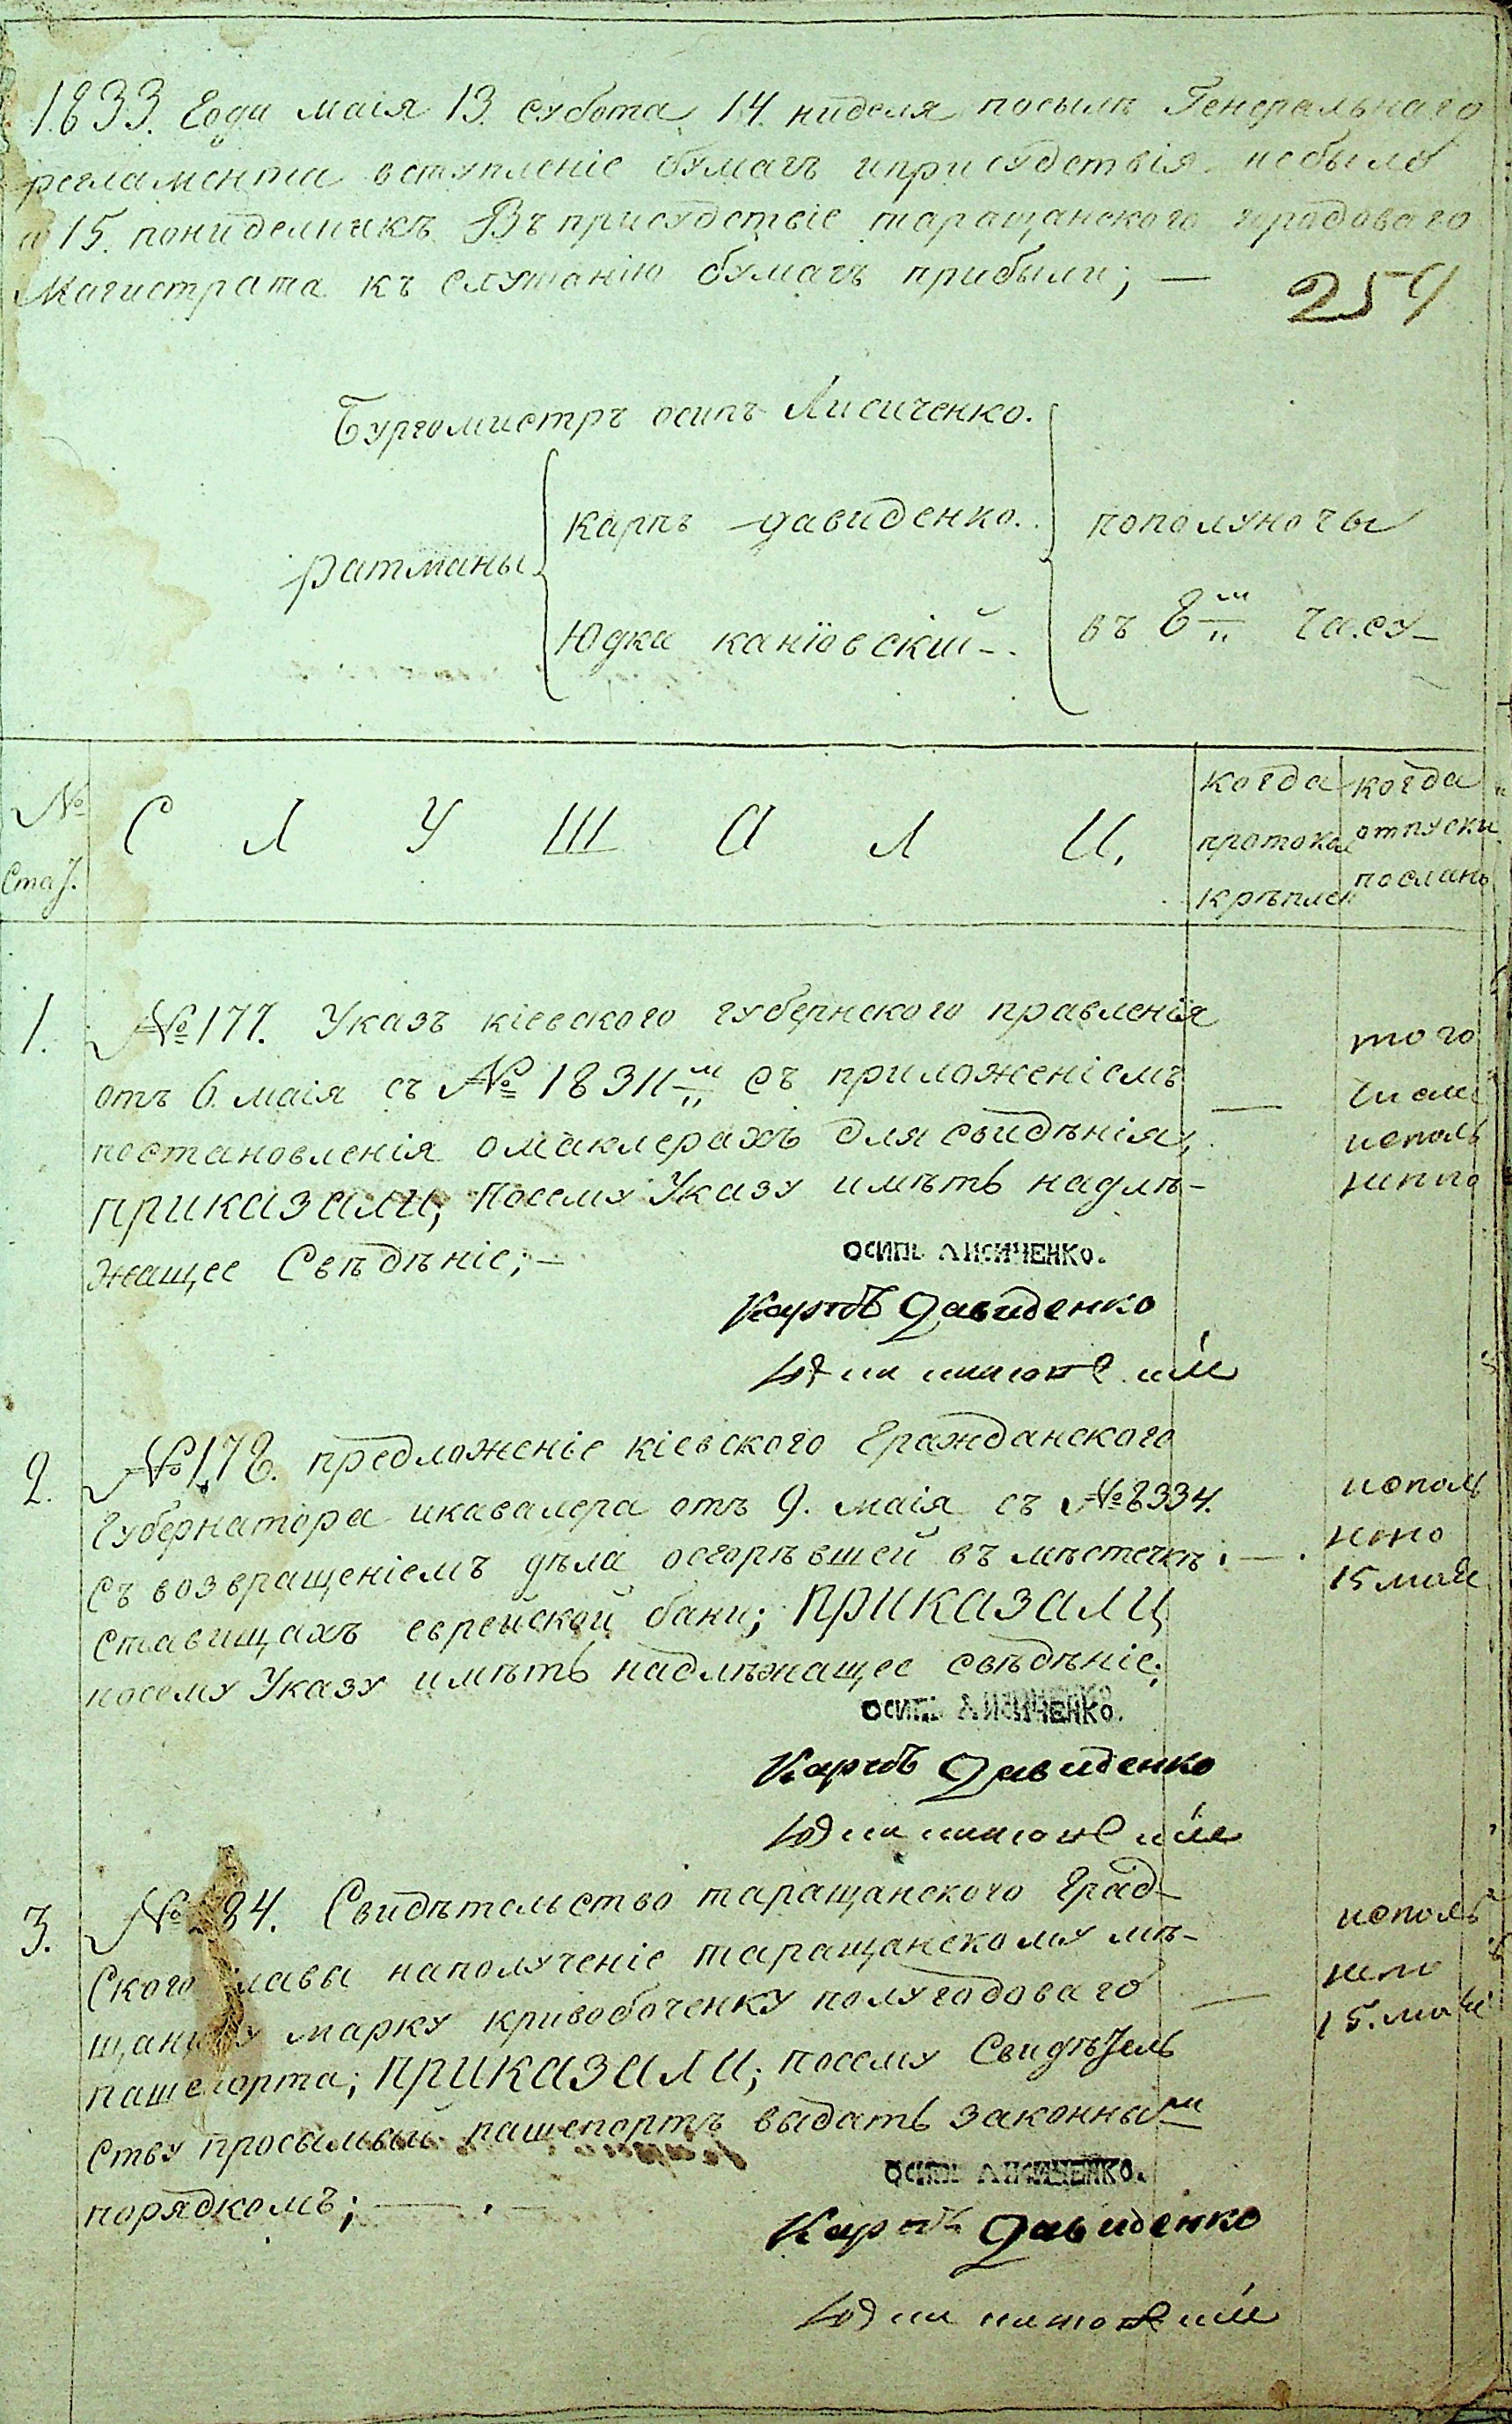 1833. Года маія 13. субота 14. ниделя посылѣ Генеральнаго
регламента вступленіе бумагъ иприсудствія небыло
а 15. пониделникъ Въ присудствіе таращанского городоваго
Магистрата къ слушанію бумагъ прибыли; —
259
Бургомистръ осипъ Лисиченко.
ратманы
Карпъ давиденко.
Юдка каніовскій
пополуночы
въ 8м часу
№ Стат.
С Л У Ш А Л И,
когда протокол крѣплен
когда отпуски посланы
1. №177. Указъ кіевского губернского правленія
отъ 6. маія съ № 18311м съ приложеніемъ
постановленія омаклерахъ для свидѣнія,
приказали; Посему Указу имѣть надлѣ-
жащее Свѣдѣніе; —
того числа исполь нено
осипъ лисиченко.
Карпъ Давиденко
2. №178. предложеніе кіевского Гражданского
Губернатора икавалера отъ 9. маія съ №8334.
Съ возвращеніемъ дѣла осгорѣвшей въ мѣстечкѣ
Ставищахъ еврейской бани; приказали
посему Указу имѣть надлѣжащее свѣдѣніе;
исполь нено 15 маія
осипъ лисиченко.
Карпъ Давиденко
3. № 184. Свидѣтельство таращанского Град-
Ского Главы наполученіе таращанскому мѣ-
щанину марку кривобоченку полугодоваго
пашепорта; приказали; посему Свидѣтель
Ству просымый пашепортъ выдать законным
порядкомъ; —
исполь нено 15. маія
осипъ лисиченко.
Карпъ Давиденко